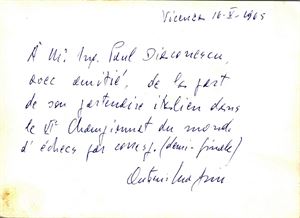 Vicenza 16-X-1965
À Mr. Ing. Paul Diaconescu,
avec amitié, de la part
de son partenaire italien dans
le VIe Championnat du monde
d'échecs par corresp. (demi-finale)